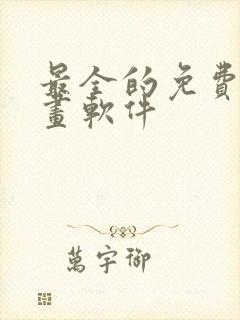 最全的免費
畫軟件
萬宇御